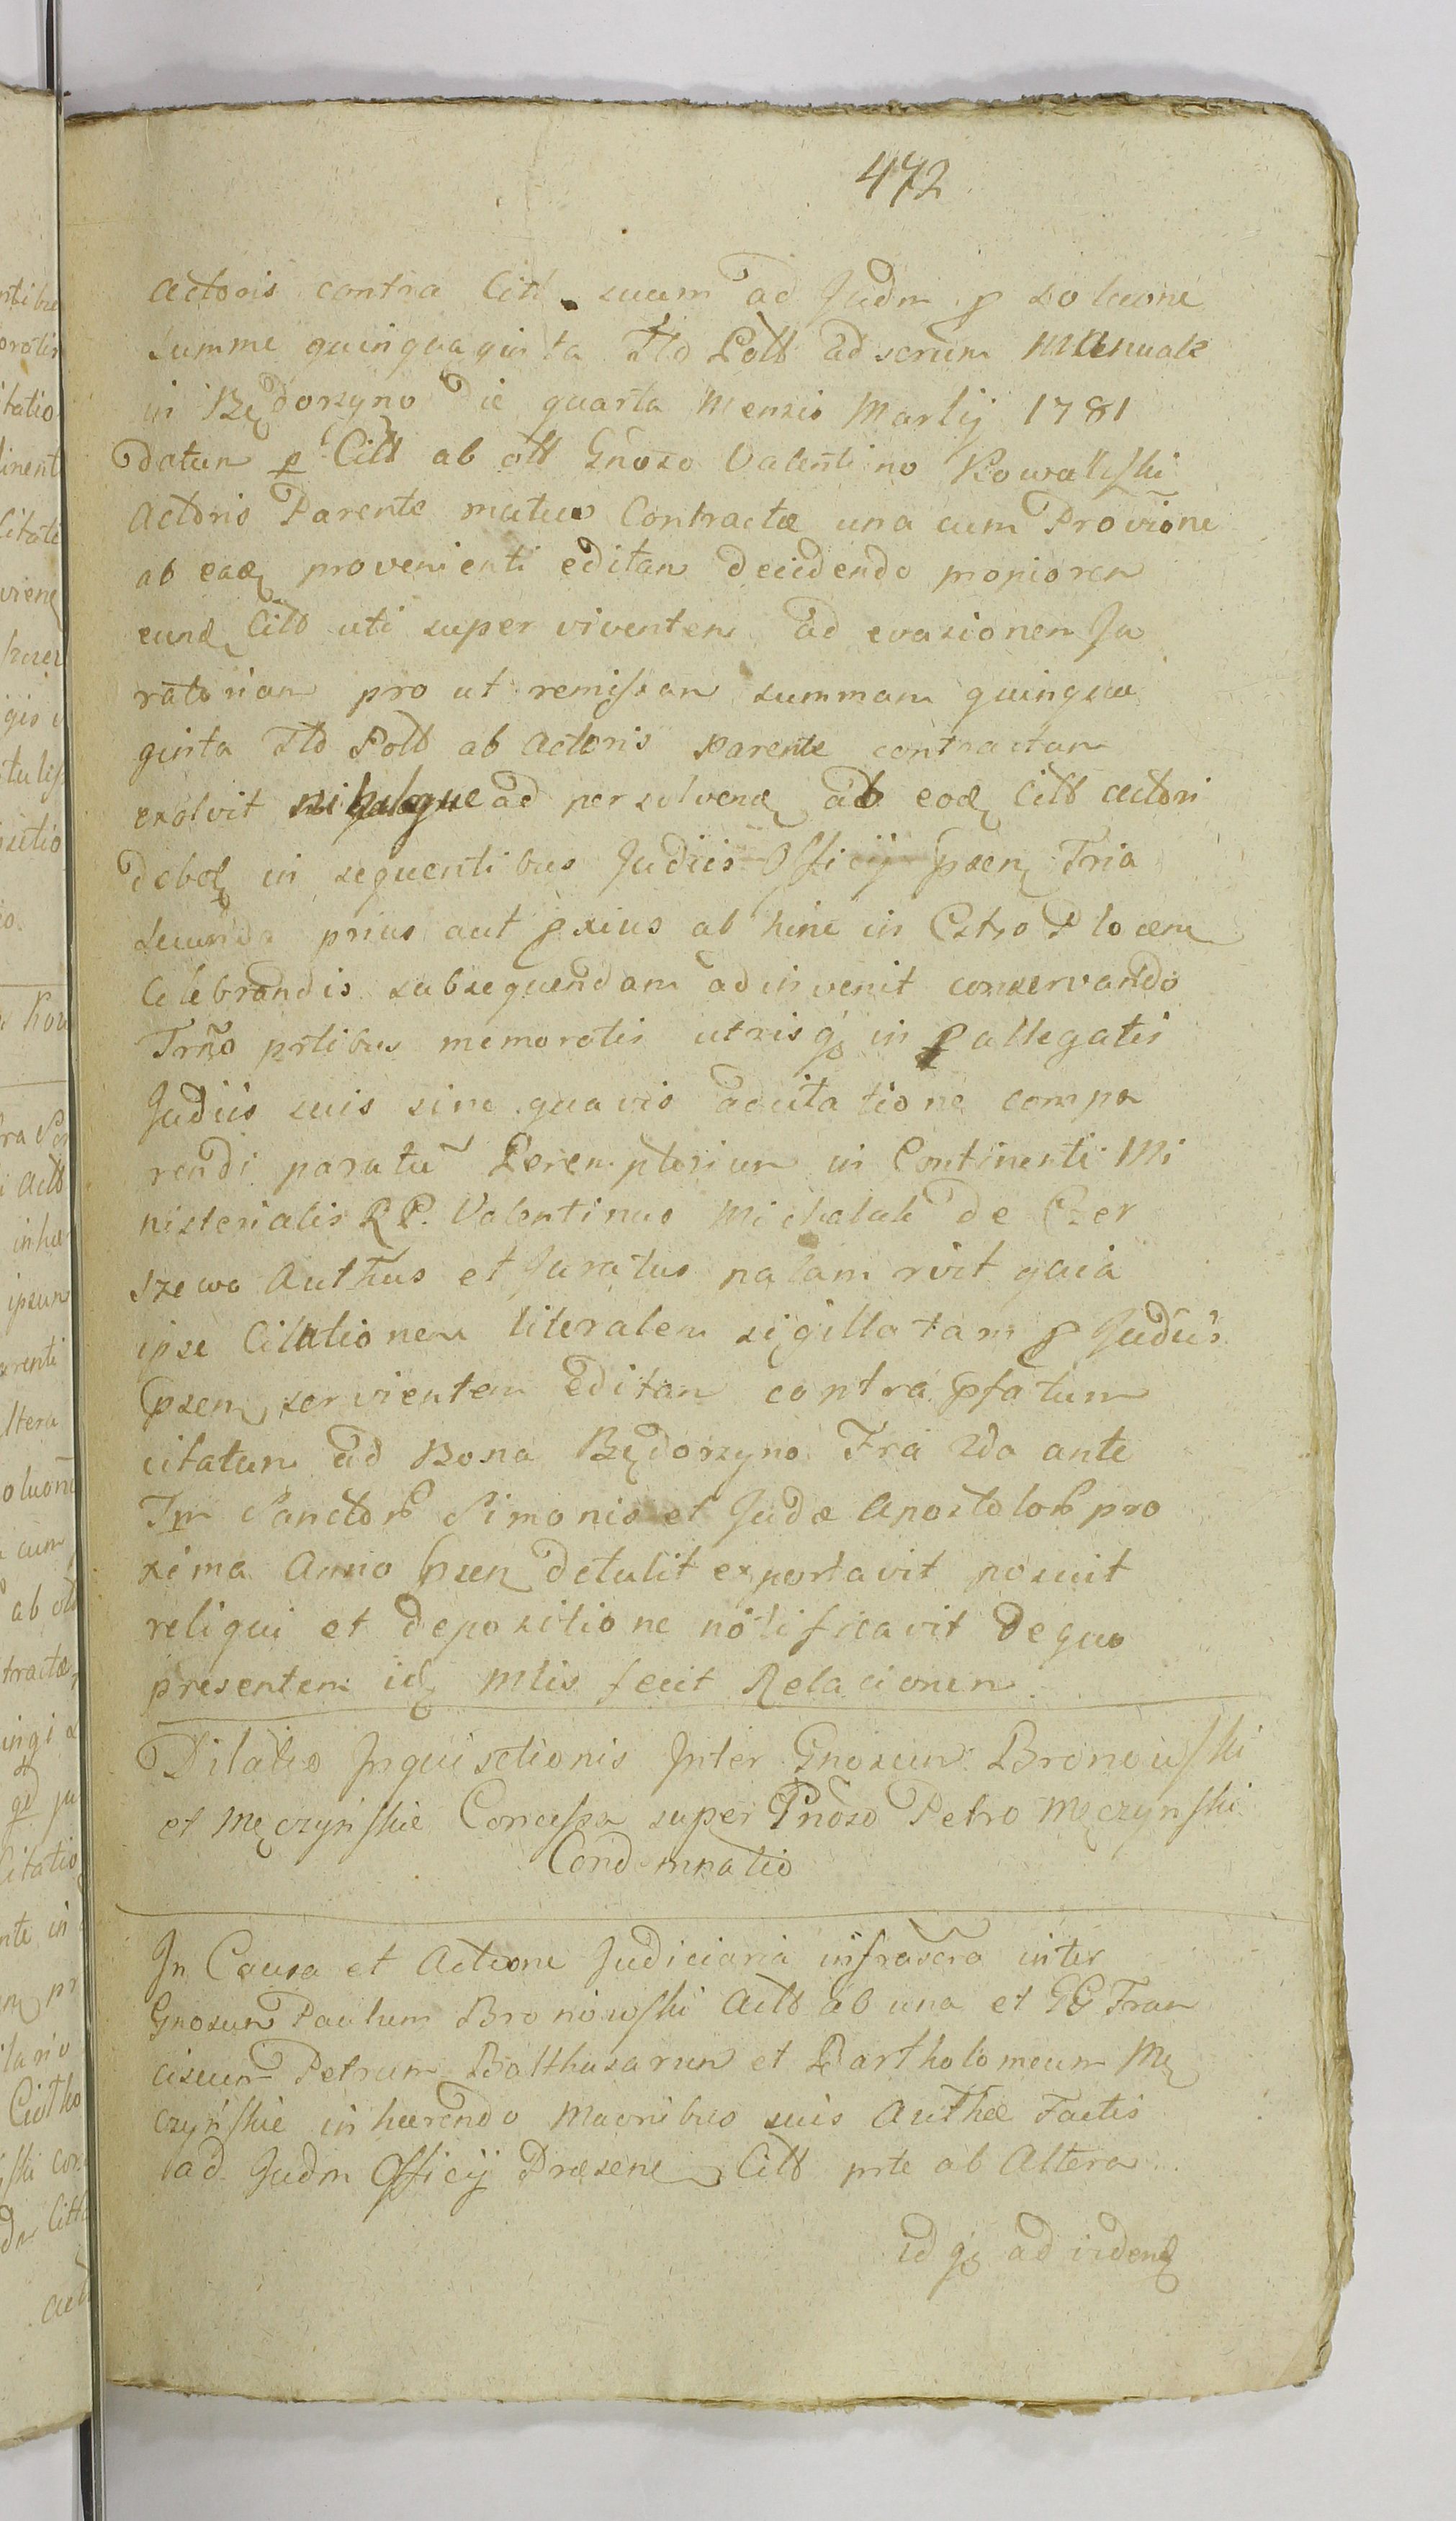 472
actoris contra Citt suum ad Judm p solucone
summe quinquaginta Flo Poll ad scrum manuale
in Będorzyno die quarta mensis Martij 1781
datum p Citt ab olt Gnoso Valentino Kowalski
actoris Parente mutuo Contractæ una cum Provione
ab eadę provenienti editam decidendo propiorem
eundę Citt uti super viventem ad evasionem Ju
ratoriam pro ut remissam summam quinqua
ginta Flo Poll ab actoris parente contractam
exolvit nihulque ad persolvendę ab eodę Citt actori
debetę in sequentibus Judiis Officij psenę Fria
secunda prius aut pxius ab hinc in Cstro Plocem
celebrandis subsequendam adinvenit conservando
Trño prtibus memoratis utrisqȝ in p allegatis
Judiis suis sine quavis adcitatione compa
rendi paratū Peremptorium in Continenti Mi
nisterialis R P. Valentinus Michalak de Czer
szewo Authus et Juratus palam rivit quia
ipse Citationem literalem sigillatam p Judiis
psenę servientem editam contra pfatum
citatum ad Bona Będorzyno Fria 2da ante
Fm Sanctor Simonis et Judæ Apostolor pro
xima Anno psen detulit exportavit posuit
reliqui et depositione notificavit de quo
presentem idę Mlis fecit Relacionem
Dilatio Inquisctionis Inter Gnosum Bronowski
et Męczynskie Concessa super Gnoso Petro Męczynski
Condemnatio
In Causa et Actione Judiciaria infrascra inter
Gnosum Paulum Bronowski Actt ab una et GG Fran
ciscum Petrum Balthasarum et Bartholomeum Mę
czyńskie inhærendo Maoribus suis Authæ Factis
ad Judm Officij Præsenę Citt prte ab Altera
idqȝ ad videndę